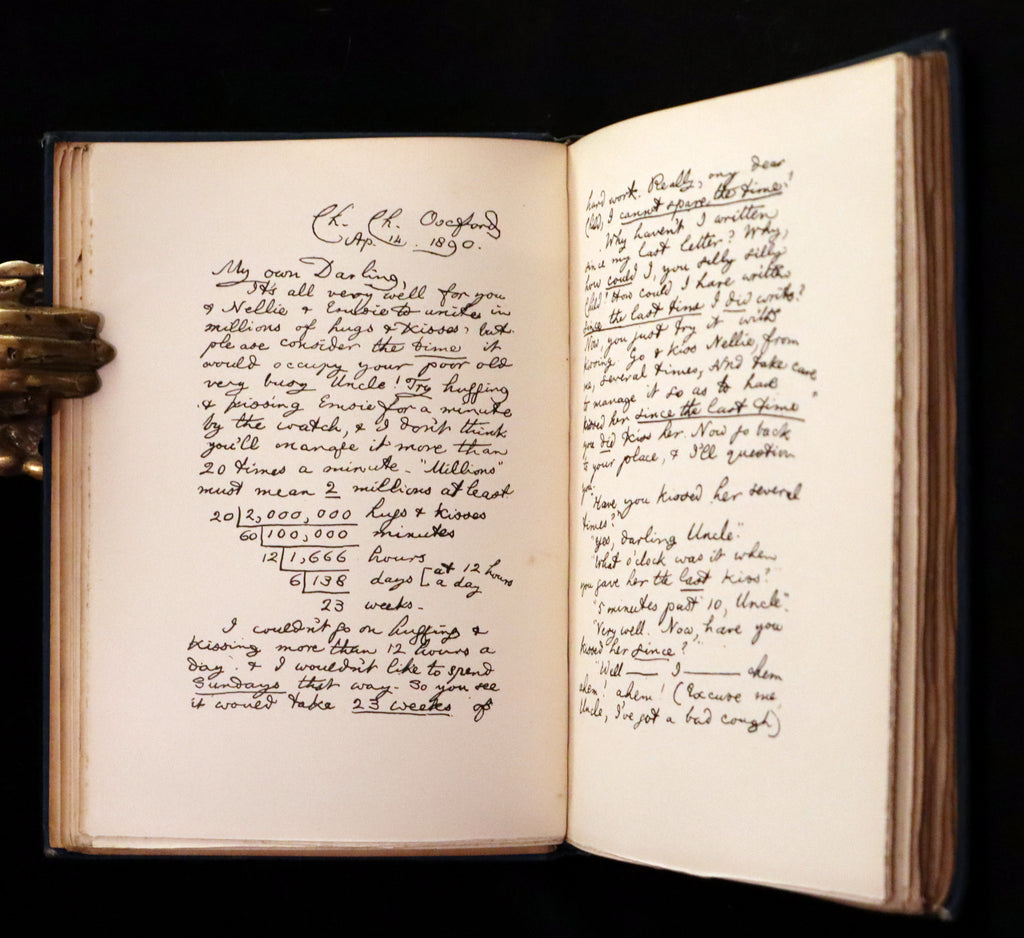 Ch. Ch. Oxford
Ap. 14. 1890.
My own Darling,
It's all very well for you
& Nellie & Emsie to unite in
millions of hugs & kisses, but
please consider the time it
would occupy your poor old
very busy Uncle! Try hugging
& kissing Emsie for a minute
by the watch, & I don't think
you'll manage it more than
20 times a minute. "Millions"
must mean 2 millions at least
20 2,000,000 hugs & kisses
60 100,000 minutes
12 1,666 hours
6 138 days [at 12 hours
a day
23 weeks.
I couldn't go on hugging &
kissing more than 12 hours a
day: & I wouldn't like to spend
Sundays that way. So you see
it would take 23 weeks of
hard work. Really, my dear
child, I cannot spare the time!
Why haven't I written
since my last letter? Why,
how could I, you silly silly
child? How could I have written
since the last time I did write?
Now, you just try it with
kissing. Go & kiss Nellie, from
me, several times, and take care
to manage it so as to have
kissed her since the last time
you did kiss her. Now go back
to your place, & I'll question
you.
"Have you kissed her several
times?"
"Yes, darling Uncle."
"What o'clock was it when
you gave her the last kiss?"
"5 minutes past 10, Uncle."
"Very well. Now, have you
kissed her since?"
"Well — I — ahem
ahem! ahem! (Excuse me,
Uncle, I've got a bad cough)